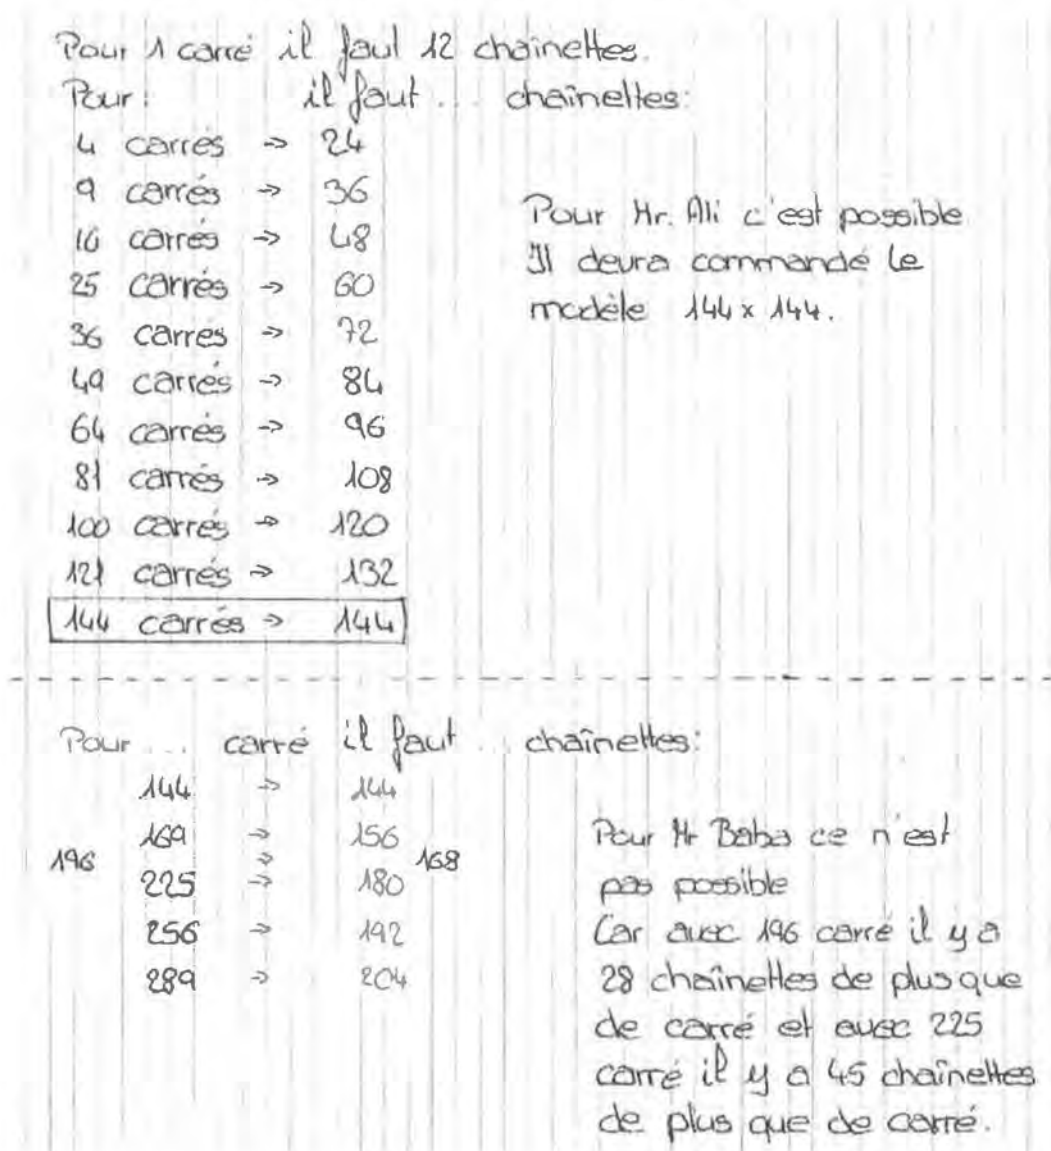 Pour 1 carré il faut 12 chaînettes.
Pour : il faut ... chaînettes :
4 carrés → 24
9 carrés → 36
16 carrés → 48
25 carrés → 60
36 carrés → 72
49 carrés → 84
64 carrés → 96
81 carrés → 108
100 carrés → 120
121 carrés → 132
144 carrés → 144
Pour Mr. Ali c'est possible
Il devra commandé le
modèle 144 x 144.
Pour ... carré il faut ... chaînettes :
144 → 144
169 → 156
196 → 168
225 → 180
256 → 192
289 → 204
Pour Mr Baba ce n'est
pas possible
Car avec 196 carré il y a
28 chaînettes de plus que
de carré et avec 225
carré il y a 45 chaînettes
de plus que de carré.